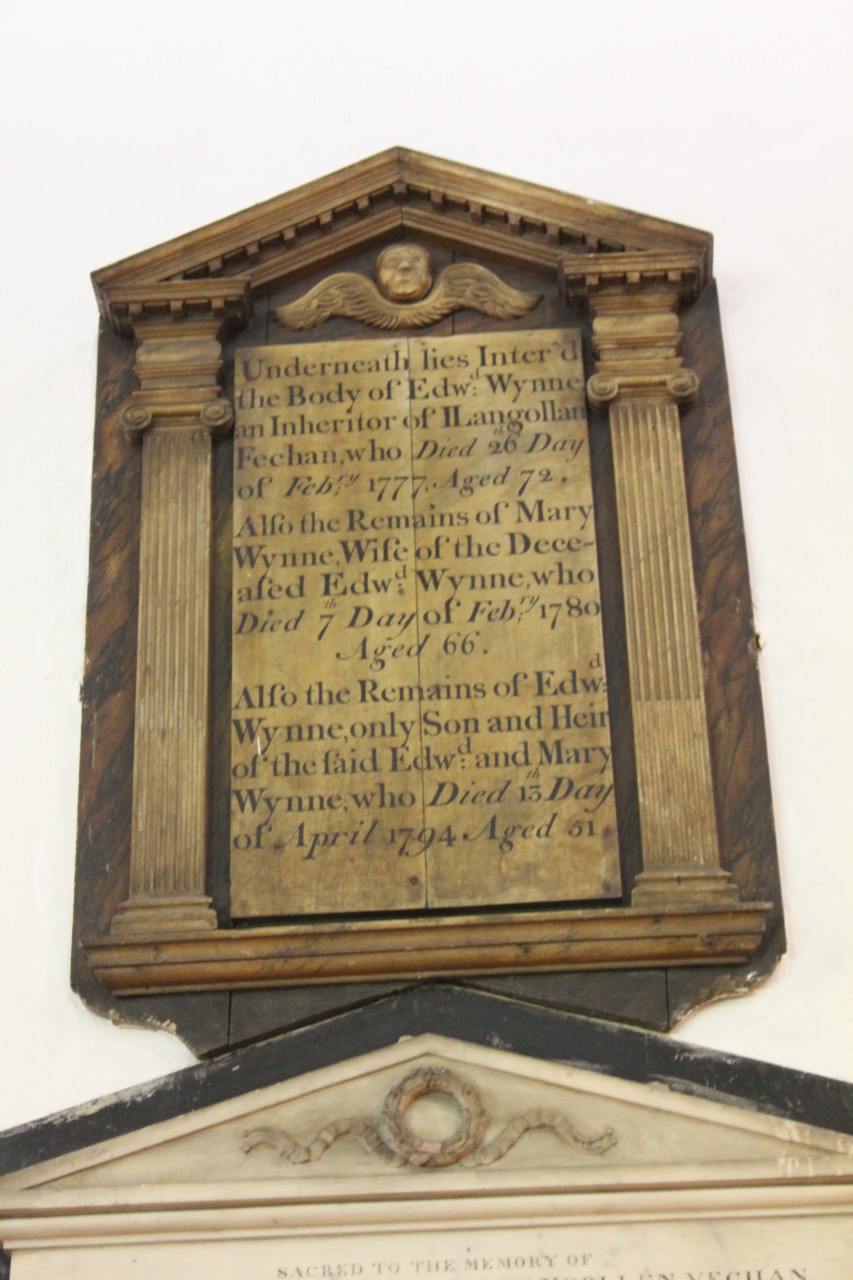 Underneath lies Inter'd
the Body of Edwᵈ: Wynne
an Inheritor of Llangollan
Fechan, who Died 26ᵗʰ Day
of Febʳʸ: 1777. Aged 72.
Alſo the Remains of Mary
Wynne, Wife of the Dece-
aſed Edwᵈ: Wynne, who
Died 7ᵗʰ Day of Febʳʸ: 1780
Aged 66.
Alſo the Remains of Edwᵈ:
Wynne, only Son and Heir
of the ſaid Edwᵈ: and Mary
Wynne, who Died 13ᵗʰ Day
of April 1794. Aged 51.
SACRED TO THE MEMORY OF
VECHAN